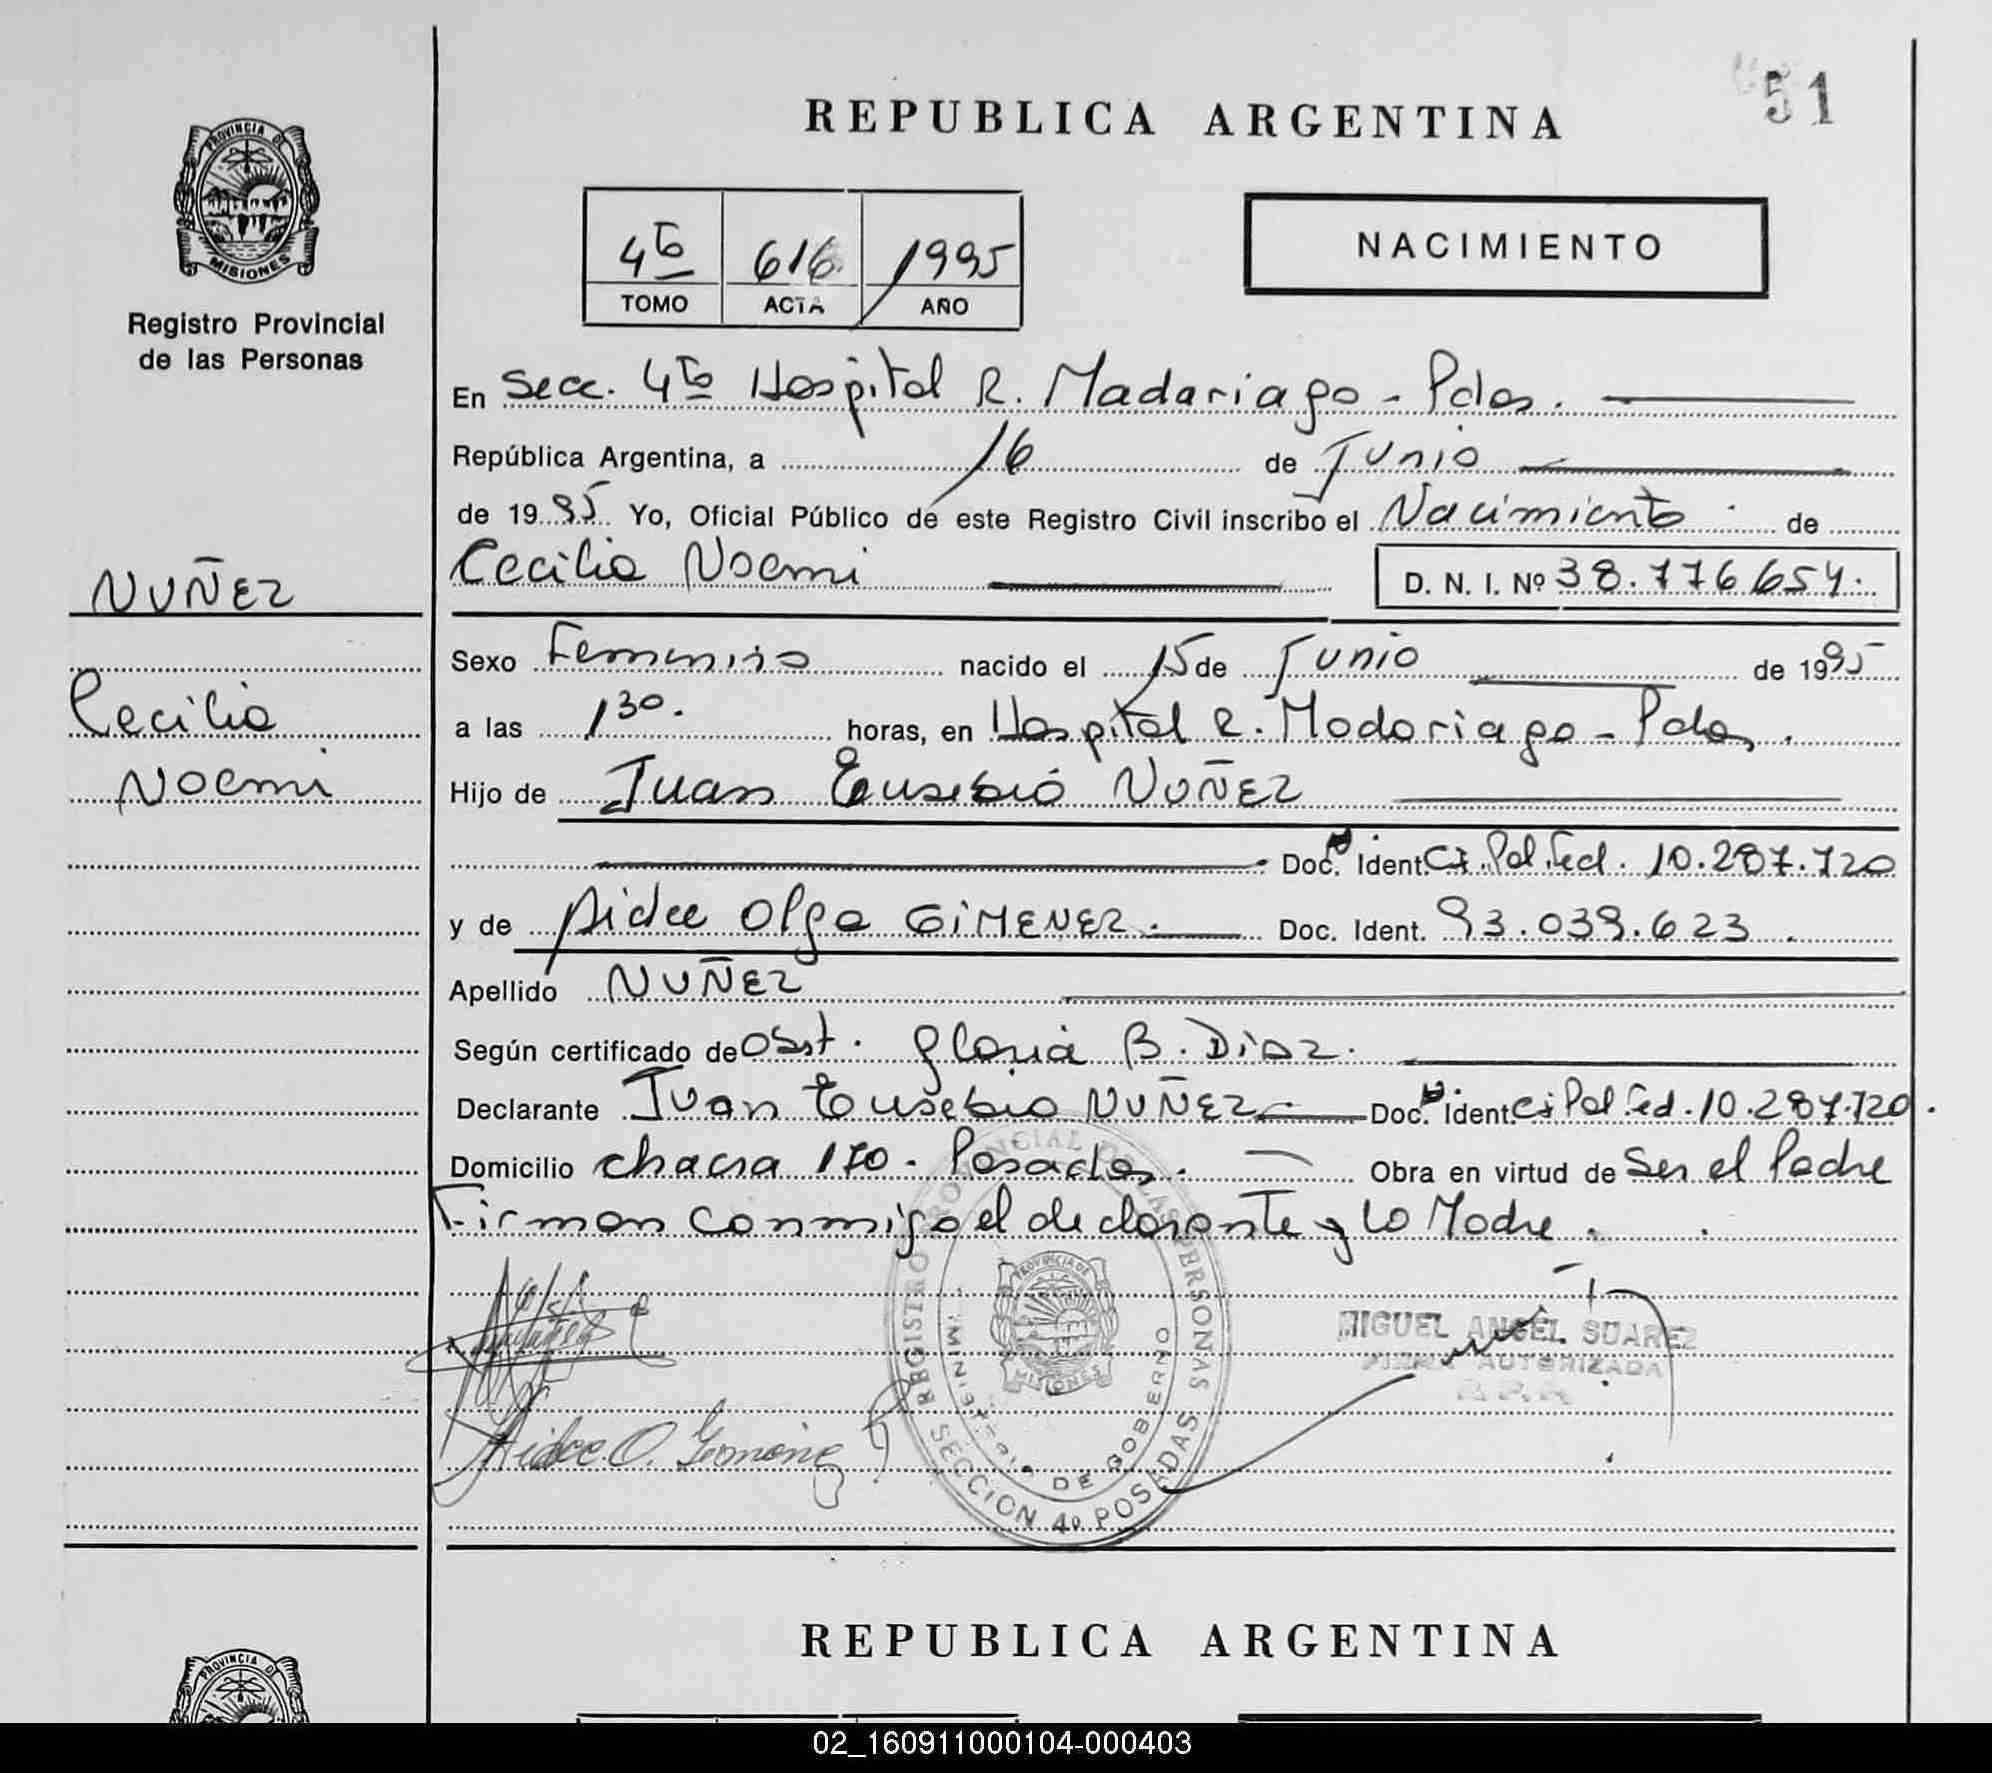 51
REPUBLICA ARGENTINA
PROVINCIA DE
MISIONES
Registro Provincial
de las Personas
4to 616 1995
TOMO ACTA AÑO
NACIMIENTO
En Secc. 4to Hospital R. Madariaga - Pdas.
República Argentina, a 16 de Junio
de 1995 Yo, Oficial Público de este Registro Civil inscribo el Nacimiento de
NUÑEZ
Cecilia Noemi D. N. I. Nº 38.776.654.
Sexo Femenino nacido el 15 de Junio de 1995
Cecilia
a las 1 30. horas, en Hospital R. Madariaga - Pdas.
Noemi
Hijo de Juan Eusebio NUÑEZ
Doc. Ident. Ci. Pol. Fed. 10.287.720
y de Aidee Olga GIMENEZ. Doc. Ident. 93.039.623.
Apellido NUÑEZ
Según certificado de Obst. Gloria B. Diaz.
Declarante Juan Eusebio NUÑEZ Doc. Ident. Ci Pol. Fed. 10.287.720.
Domicilio chacra 170. Posadas. Obra en virtud de Ser el Padre
Firman conmigo el declarante y la Madre.
REGISTRO PROVINCIAL DE LAS PERSONAS
MINISTERIO DE GOBERNO
PROVINCIA DE
MISIONES
SECCION 4º POSADAS
MIGUEL ANGEL SUAREZ
FIRMA AUTORIZADA
Aidee O.
REPUBLICA ARGENTINA
PROVINCIA DE
02_160911000104-000403